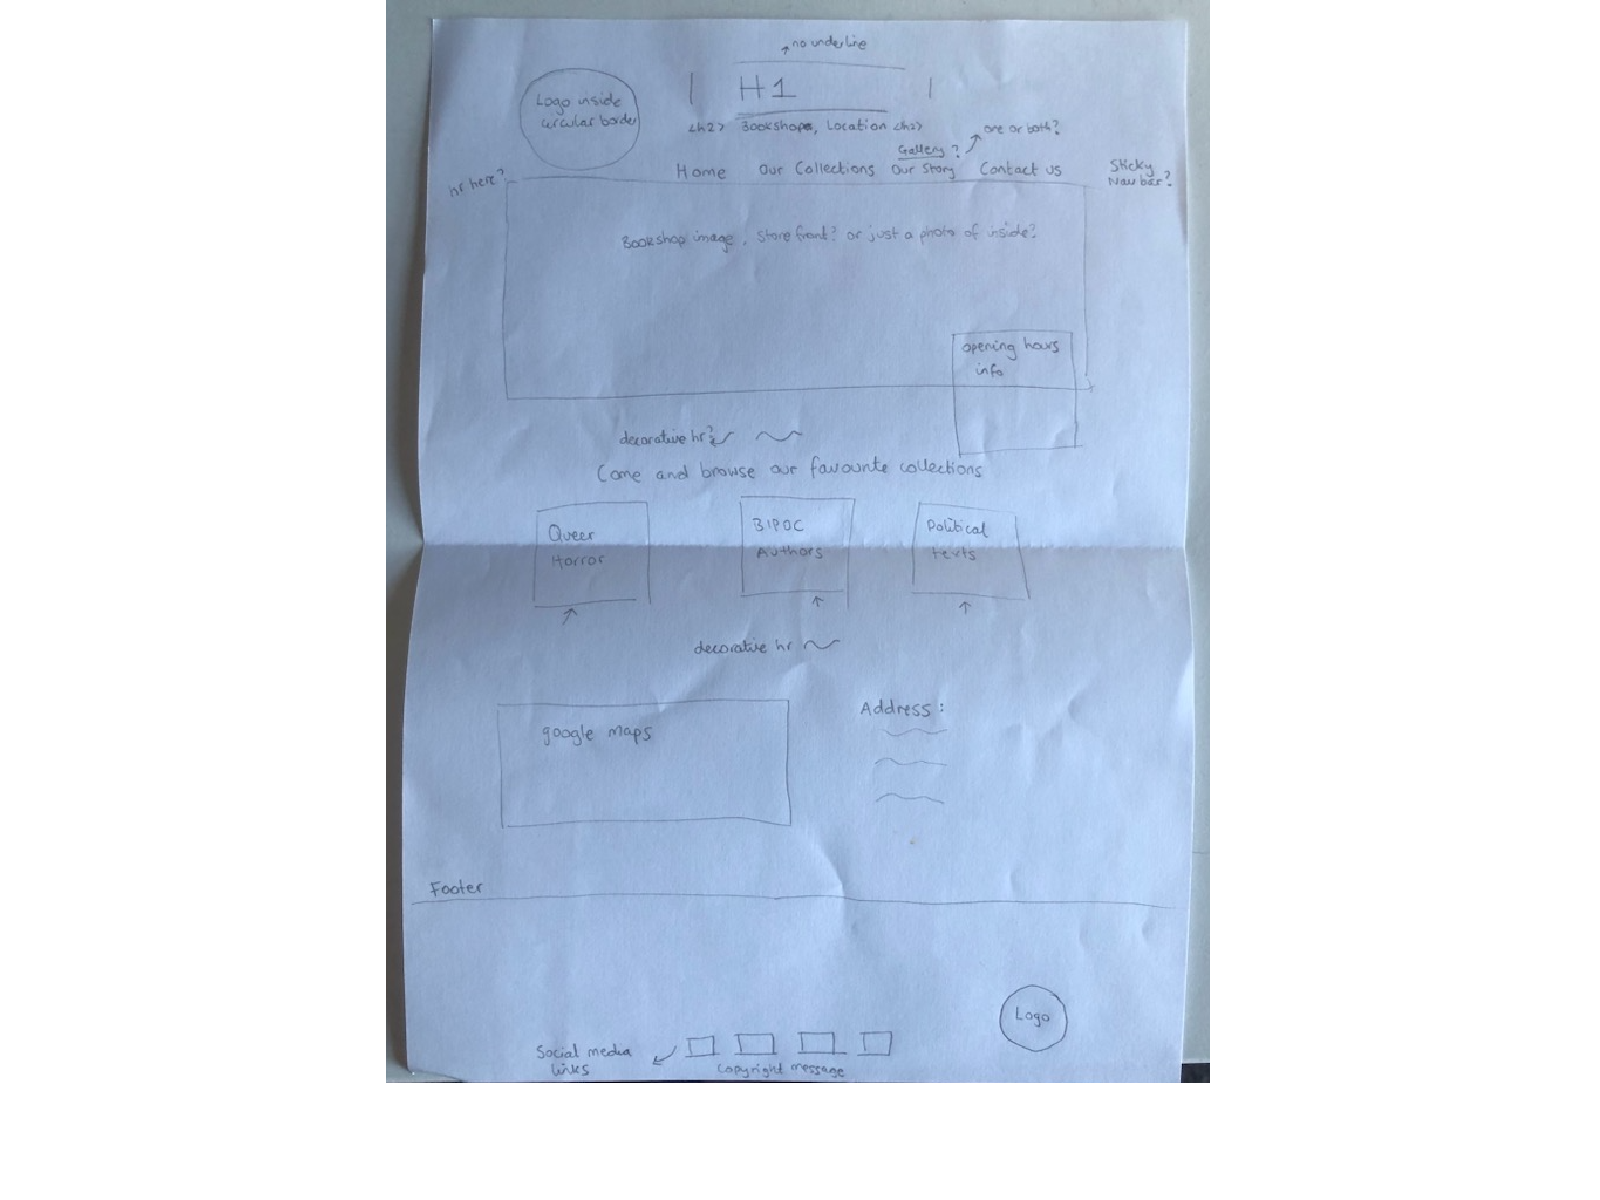 no underline
Logo inside
circular border
H1
<h2> Bookshop, Location <h2>
one or both?
Gallery?
Home Our Collections Our Story Contact us
Sticky
Nav bar?
hr here?
Bookshop image, store front? or just a photo of inside?
opening hours
info
decorative hr?
Come and browse our favourite collections
Queer
Horror
BIPOC
Authors
Political
texts
decorative hr
google maps
Address:
Footer
Logo
Social media
links
Copyright message